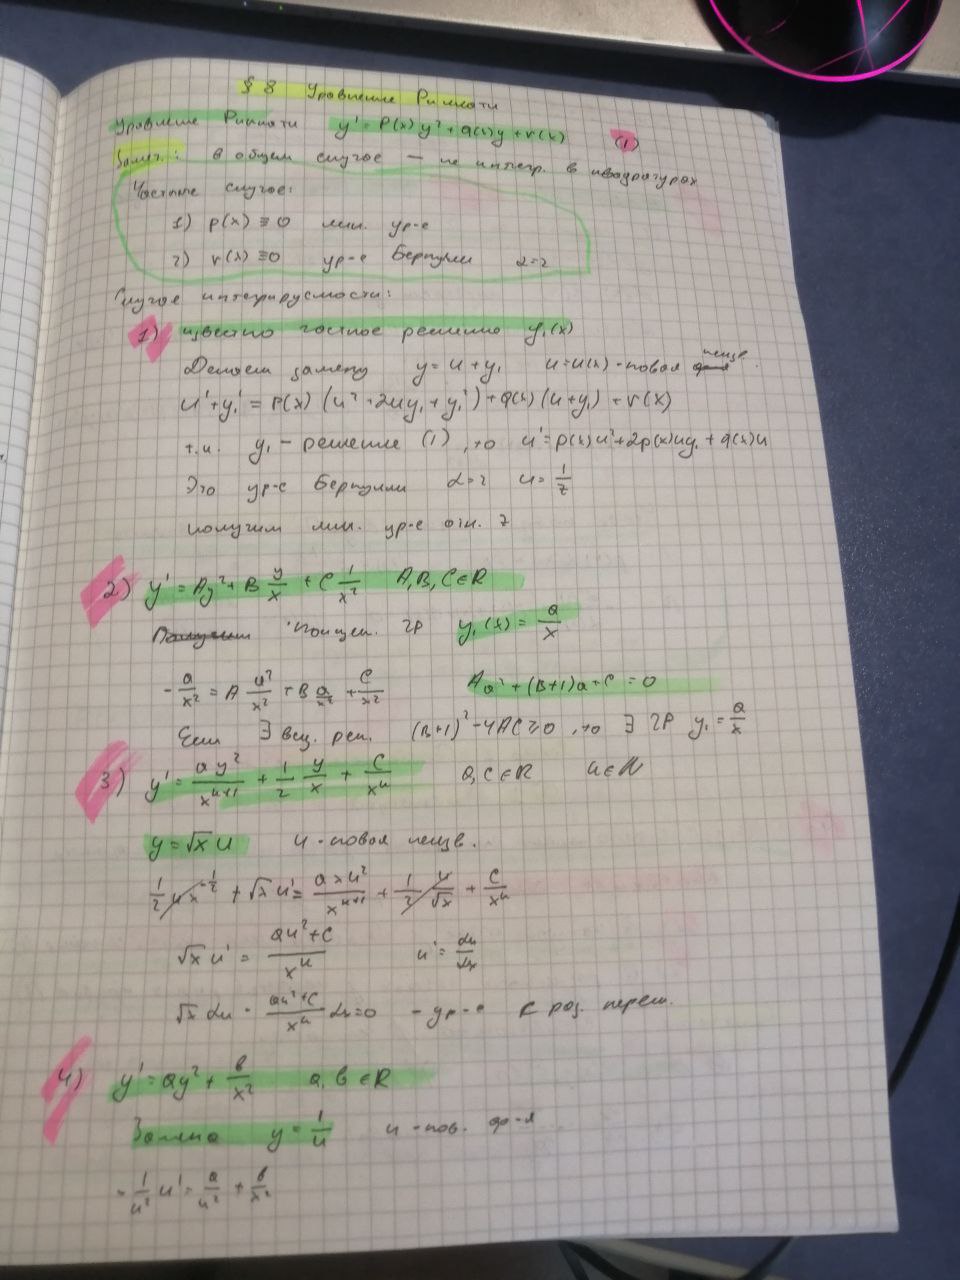 § 8 Уравнение Риккати
Уравнение Риккати y' = P(x)y² + q(x)y + r(x) (1)
Замеч.: в общем случае — не интегр. в квадратурах
Частные случае:
1) p(x) ≡ 0 лин. ур-е
2) r(x) ≡ 0 ур-е Бернулли α=2
Случае интегрируемости:
1) известно частное решение y₁(x)
Делаем замену y = u + y₁ u = u(x) - новая неизв.
u' + y₁' = p(x) (u² + 2uy₁ + y₁²) + q(x) (u + y₁) + r(x)
т.к. y₁ - решение (1), то u' = p(x)u² + 2p(x)uy₁ + q(x)u
Это ур-е Бернулли α=2 u = 1/z
получим лин. ур-е отн. z
2) y' = Ay² + B y/x + C 1/x² A, B, C ∈ R
поищем ЧР y₁(x) = a/x
-a/x² = A a²/x² + B a/x² + C/x² Aa² + (B+1)a + C = 0
Если ∃ вещ. реш. (B+1)² - 4AC ≥ 0, то ∃ ЧР y₁ = a/x
3) y' = ay²/xⁿ⁺¹ + 1/2 y/x + C/xⁿ a, C ∈ R n ∈ N
y = √x u u - новая неизв.
1/2 u x^(-1/2) + √x u' = axu²/xⁿ⁺¹ + 1/2 u/√x + C/xⁿ
√x u' = au²+C/xⁿ u' = du/dx
√x du - au²+C/xⁿ dx = 0 - ур-е с раз. перем.
4) y' = ay² + b/x² a, b ∈ R
Замена y = 1/u u - нов. ф-я
- 1/u² u' = a/u² + b/x²